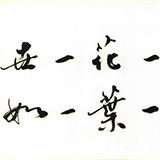 一花一世
一葉一如